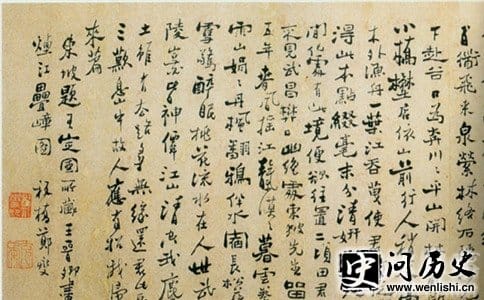 飛来泉縈林絡石
下赴谷口為奔川川平山開林
小橋壄店依山前行人稍
木外漁舟一葉江吞天使君
得此本點綴毫末分清妍
間何處有此境便欲往置二頃田君
不見武昌樊口幽絕處東坡先生留
五年春風搖江天漠漠暮雲
雨山娟娟丹楓翻鴉伴水宿長松
雪驚醉眠桃花流水在人世武
陵豈皆神僊江山清空我塵
土雖有去路尋無緣還君此
三歎息山中故人應有招我歸
來篇
東坡題王定國所藏王晉卿畫
煙江疊嶂圖 板橋鄭燮
问历史
www.wenlishi.com